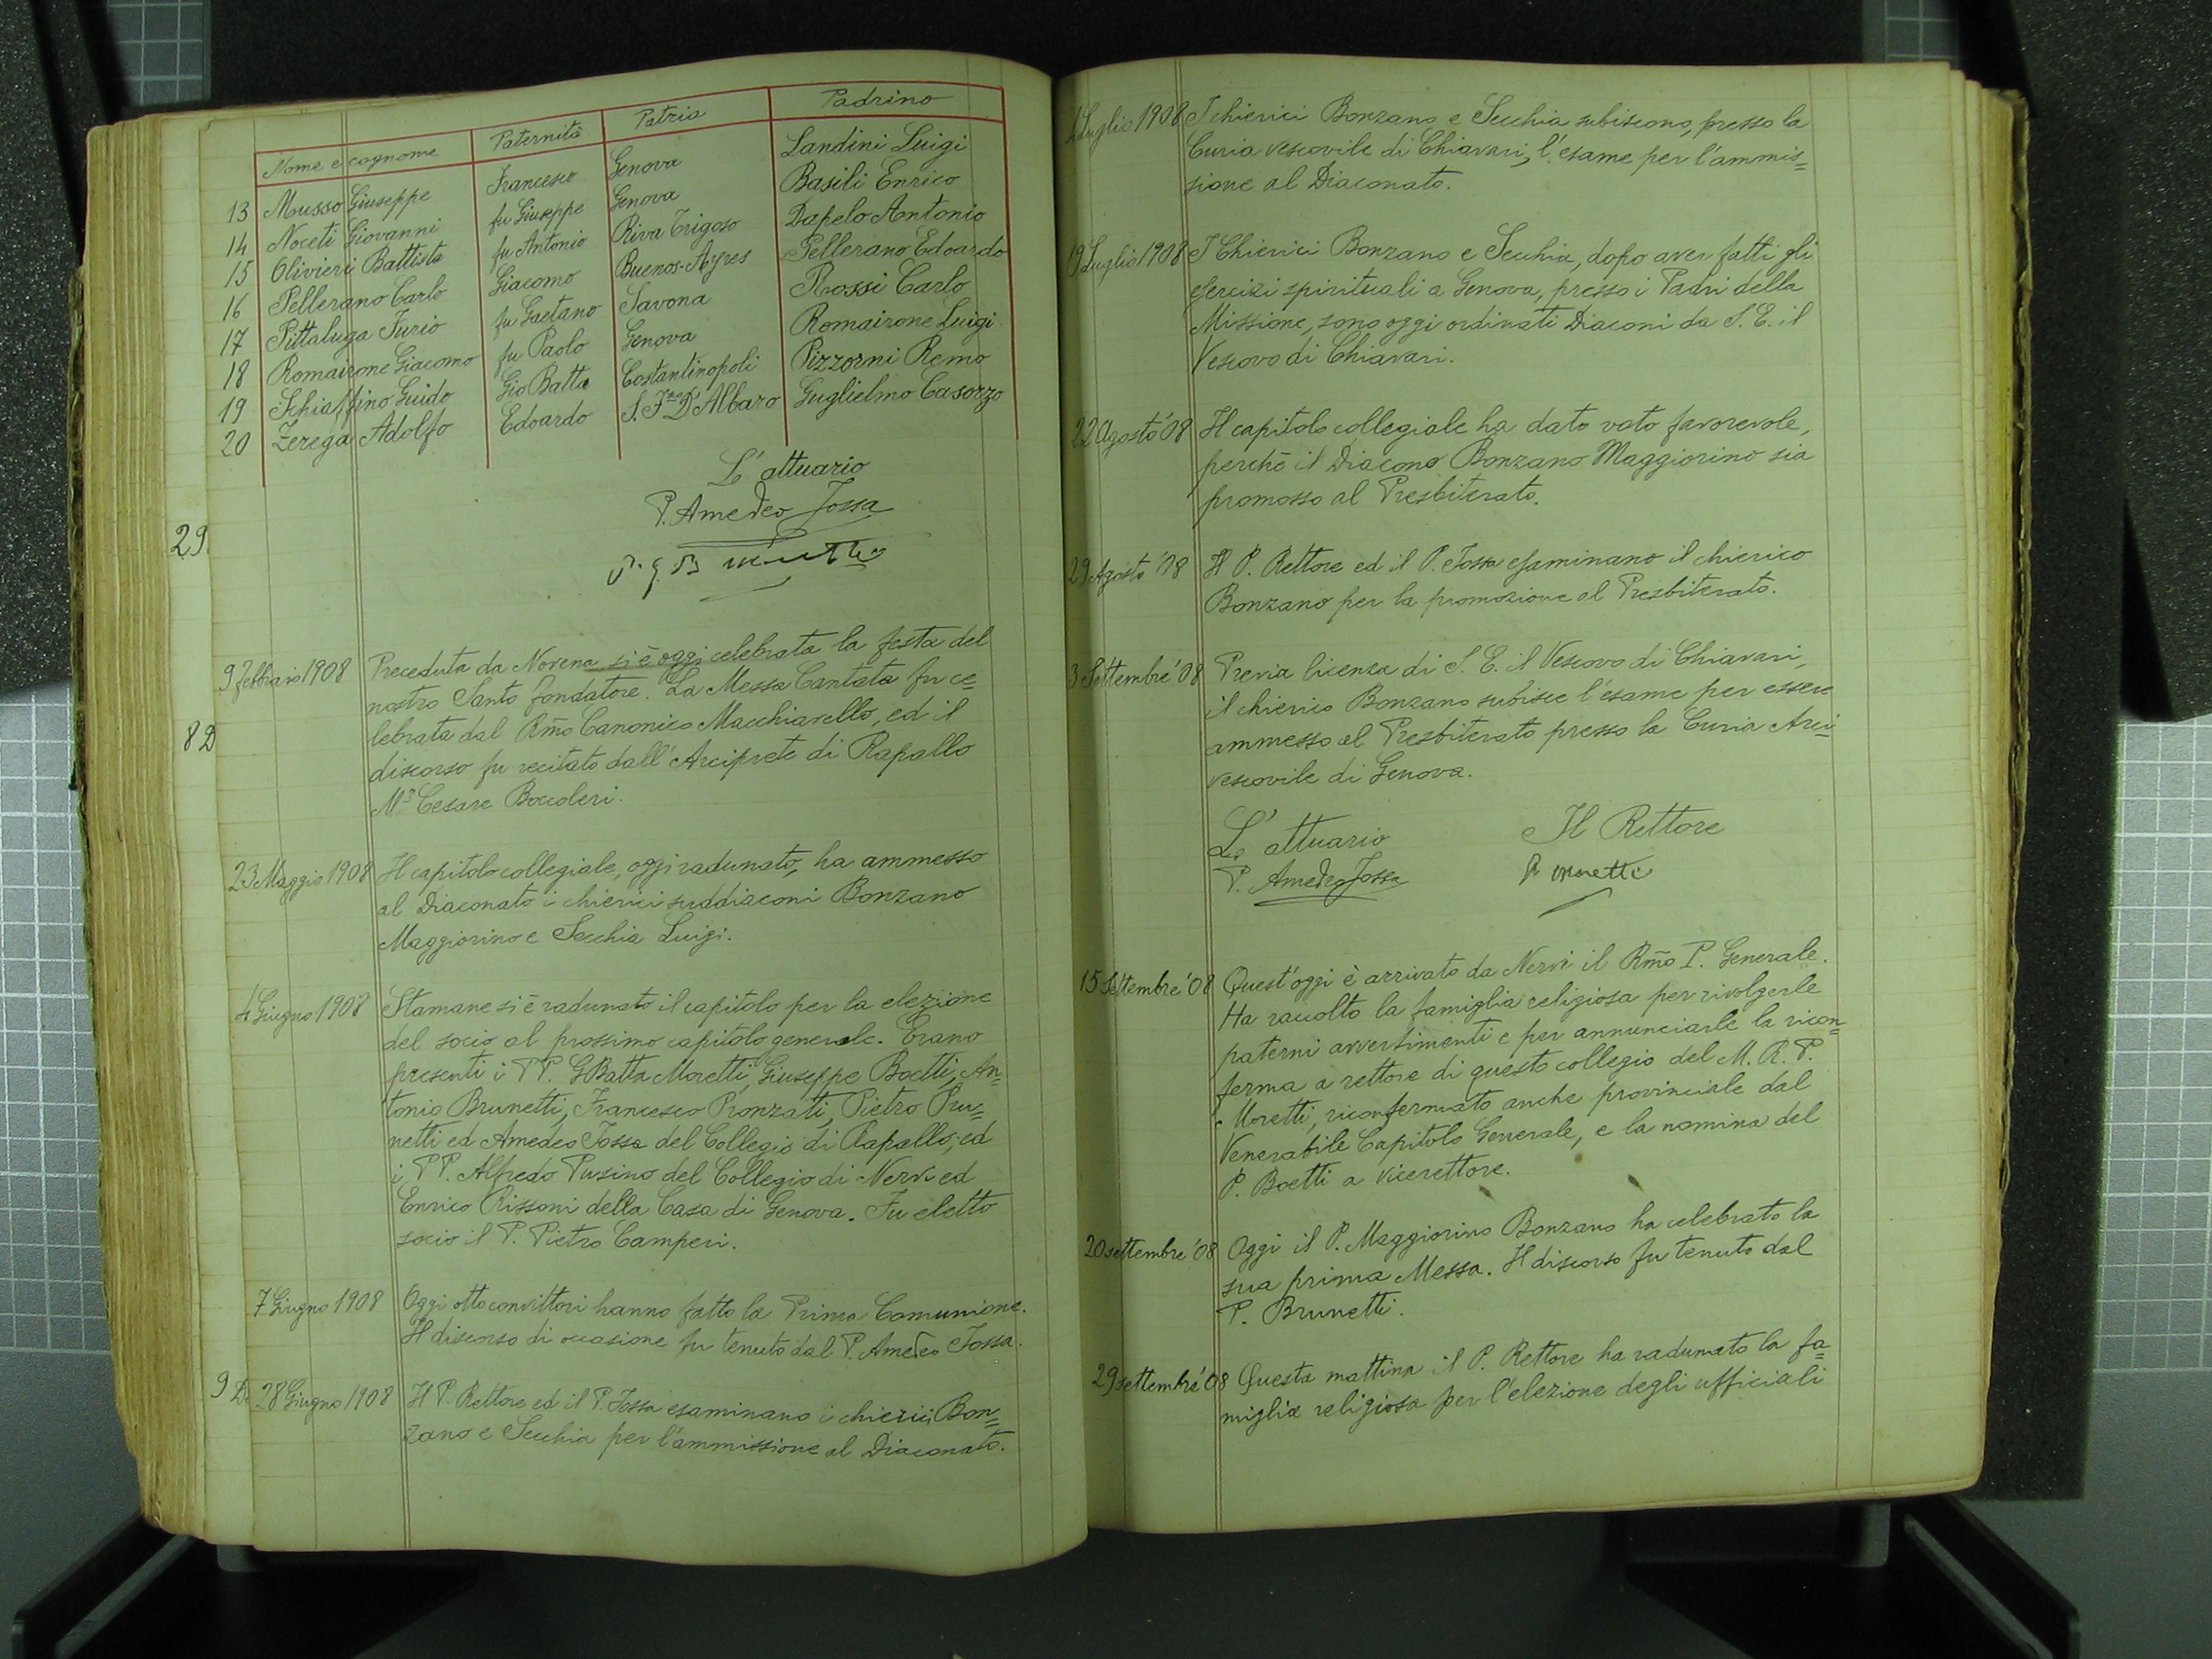 Nome e cognome Paternità Patria Padrino
13 Musso Giuseppe Francesco Genova Landini Luigi
14 Noceti Giovanni fu Giuseppe Genova Basili Enrico
15 Olivieri Battista fu Antonio Riva Trigoso Dapelo Antonio
16 Pellerano Carlo Giacomo Buenos-Ayres Pellerano Edoardo
17 Pittaluga Furio fu Gaetano Savona Rossi Carlo
18 Romairone Giacomo fu Paolo Genova Romairone Luigi
19 Schiaffino Guido Gio Batta Costantinopoli Pizzorni Remo
20 Zerega Adolfo Edoardo S. Fco D'Albaro Guglielmo Casorzo
L'attuario
P. Amedeo Jossa
29.
P. G. B. Moretti
9 Febbraio 1908 Preceduta da Novena si è oggi celebrata la festa del
nostro Santo fondatore. La Messa Cantata fu ce=
8 D
lebrata dal Rmo Canonico Macchiavello, ed il
discorso fu recitato dall'Arciprete di Rapallo
Mr Cesare Boccoleri.
23 Maggio 1908 Il capitolo collegiale, oggi radunato, ha ammesso
al Diaconato i chierici suddiaconi Bonzano
Maggiorino e Secchia Luigi.
4 Giugno 1908 Stamane si è radunato il capitolo per la elezione
del socio al prossimo capitolo generale. Erano
presenti i PP. GBatta Moretti, Giuseppe Boetti, An=
tonio Brunetti, Francesco Pronzati, Pietro Pru=
netti ed Amedeo Jossa del Collegio di Rapallo, ed
i PP. Alfredo Pusino del Collegio di Nervi ed
Enrico Rissoni della Casa di Genova. Fu eletto
socio il P. Pietro Camperi.
7 Giugno 1908 Oggi otto convittori hanno fatto la Prima Comunione.
Il discorso di occasione fu tenuto dal P. Amedeo Jossa.
9 D. 28 Giugno 1908 Il P. Rettore ed il P. Jossa esaminano i chierici Bon=
zano e Secchia per l'ammissione al Diaconato.
Luglio 1908 I chierici Bonzano e Secchia subiscono, presso la
Curia vescovile di Chiavari, l'esame per l'ammis=
sione al Diaconato.
19 Luglio 1908 I Chierici Bonzano e Secchia, dopo aver fatti gli
esercizi spirituali a Genova, presso i Padri della
Missione, sono oggi ordinati Diaconi da S. E. il
Vescovo di Chiavari.
22 Agosto '08 Il capitolo collegiale ha dato voto favorevole,
perchè il Diacono Bonzano Maggiorino sia
promosso al Presbiterato.
29 Agosto '08 Il P. Rettore ed il P. Jossa esaminano il chierico
Bonzano per la promozione al Presbiterato.
3 Settembre '08 Previa licenza di S. E. il Vescovo di Chiavari,
il chierico Bonzano subisce l'esame per essere
ammesso al Presbiterato presso la Curia Arci=
vescovile di Genova.
L'attuario Il Rettore
P. Amedeo Jossa P. Moretti
15 Settembre '08 Quest'oggi è arrivato da Nervi il Rmo P. Generale.
Ha raccolto la famiglia religiosa per rivolgerle
paterni avvertimenti e per annunciarle la ricon=
ferma a rettore di questo collegio del M. R. P.
Moretti, riconfermato anche provinciale dal
Venerabile Capitolo Generale, e la nomina del
P. Boetti a vicerettore.
20 settembre '08 Oggi il P. Maggiorino Bonzano ha celebrato la
sua prima Messa. Il discorso fu tenuto dal
P. Brunetti.
29 settembre '08 Questa mattina il P. Rettore ha radunato la fa=
miglia religiosa per l'elezione degli ufficiali